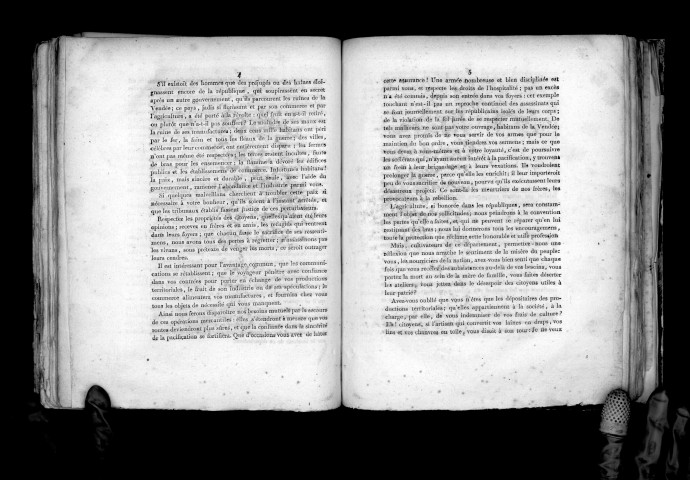 4
S'il existoit des hommes que des préjugés ou des haines éloi-
gnassent encore de la république, qui soupirassent en secret
après un autre gouvernement, qu'ils parcourent les ruines de la
Vendée; ce pays, jadis si florissant et par son commerce et par
l'agriculture, a été porté à la révolte: quel fruit en a-t-il retiré,
ou plutôt que n'a-t-il pas souffert? La
la ruine de ses manufactures; deux cens mille habitans ont péri
par le fer, la faim et tous les fléaux de la guerre; des villes,
célèbres par leur commerce, ont entièrement disparu; les fermes
n'ont pas même été respectées; les terres restent incultes, faute
de bras pour les ensemencer; la flamme a dévoré les édifices
publics et les établissemens de commerce. Infortunés habitans!
la paix, mais sincère et durable, peut seule, avec l'aide du
gouvernement, ramener l'abondance et l'industrie parmi vous.
Si quelques malveillans cherchent à troubler cette paix si
nécessaire à votre bonheur, qu'ils soient à l'instant arrêtés, et
que les tribunaux établis fassent justice de ces perturbateurs.
Respectez les propriétés des citoyens, quelles qu'aient été leurs
opinions; recevez en frères et en amis, les réfugiés qui rentrent
dans leurs foyers; que chacun fasse le sacrifice de ses ressenti-
mens, nous avons tous des pertes à regretter; n'assassinons pas
les vivans, sous prétexte de venger les morts, ce seroit outrager
leurs cendres.
Il est intéressant pour l'avantage commun, que les communi-
cations se rétablissent; que le voyageur pénètre avec confiance
dans vos contrées pour porter en échange de vos productions
territoriales, le fruit de son industrie ou de ses spéculations; le
commerce alimentera vos manufactures, et fournira chez vous
tous les objets de nécessité qui vous manquent.
Ainsi nous ferons disparoître nos besoins mutuels par le secours
de ces opérations mercantiles: elles s'étendront à mesure que vos
routes deviendront plus sûres, et que la confiance dans la sincérité
de la pacification se fortifiera. Que d'occasions vous avez de hâter
5
cette assurance! Une armée nombreuse et bien disciplinée est
parmi vous, et respecte les droits de l'hospitalité; pas un excès
n'a été commis, depuis son entrée dans vos foyers: cet exemple
touchant n'est-il pas un reproche continuel des assassinats qui
se font journellement sur les républicains isolés de leurs corps;
de la violation de la foi jurée de se respecter mutuellement. De
tels malheurs ne sont pas votre ouvrage, habitans de la Vendée;
vous avez promis de ne vous servir de vos armes que pour le
maintien du bon ordre, vous tiendrez vos sermens; mais ce que
vous devez à vous-mêmes et à votre loyauté, c'est de poursuivre
les scélérats qui, n'ayant aucun intérêt à la pacification, y trouvent
un frein à leur brigandage et à leurs vexations. Ils voudroient
prolonger la guerre, parce qu'elle les enrichit; il leur importeroit
peu de vous sacrifier de nouveau, pourvu qu'ils exécutassent leurs
désastreux projets. Ce sont-là les meurtriers de nos frères, les
provocateurs à la rebellion.
L'agriculture, si honorée dans les républiques, sera constam-
ment l'objet de nos sollicitudes; nous peindrons à la convention
les pertes qu'elle a faites, et qui ne peuvent se réparer qu'en lui
restituant des bras; nous lui donnerons tous les encouragemens,
toute la protection que réclame cette honorable et utile profession
Mais, cultivateurs de ce département, permettez-nous une
réflexion que nous arrache le sentiment de la misère du peuple:
vous, les nourriciers de la nation, avez-vous bien senti que chaque
fois que vous recélez des subsistances au-delà de vos besoins, vous
portez la mort au sein de la mère de famille, vous faites déserter
les ateliers, vous jettez dans le désespoir des citoyens utiles à
leur patrie?
Avez-vous oublié que vous n'êtes que les dépositaires des pro-
ductions territoriales; qu'elles appartiennent à la société, à la
charge, par elle, de vous indemniser de vos frais de culture?
Eh! citoyens, si l'artisan qui convertit vos laines en draps, vos
lins et vos chanvres en toile, vous disoit à son tour: Je ne veux